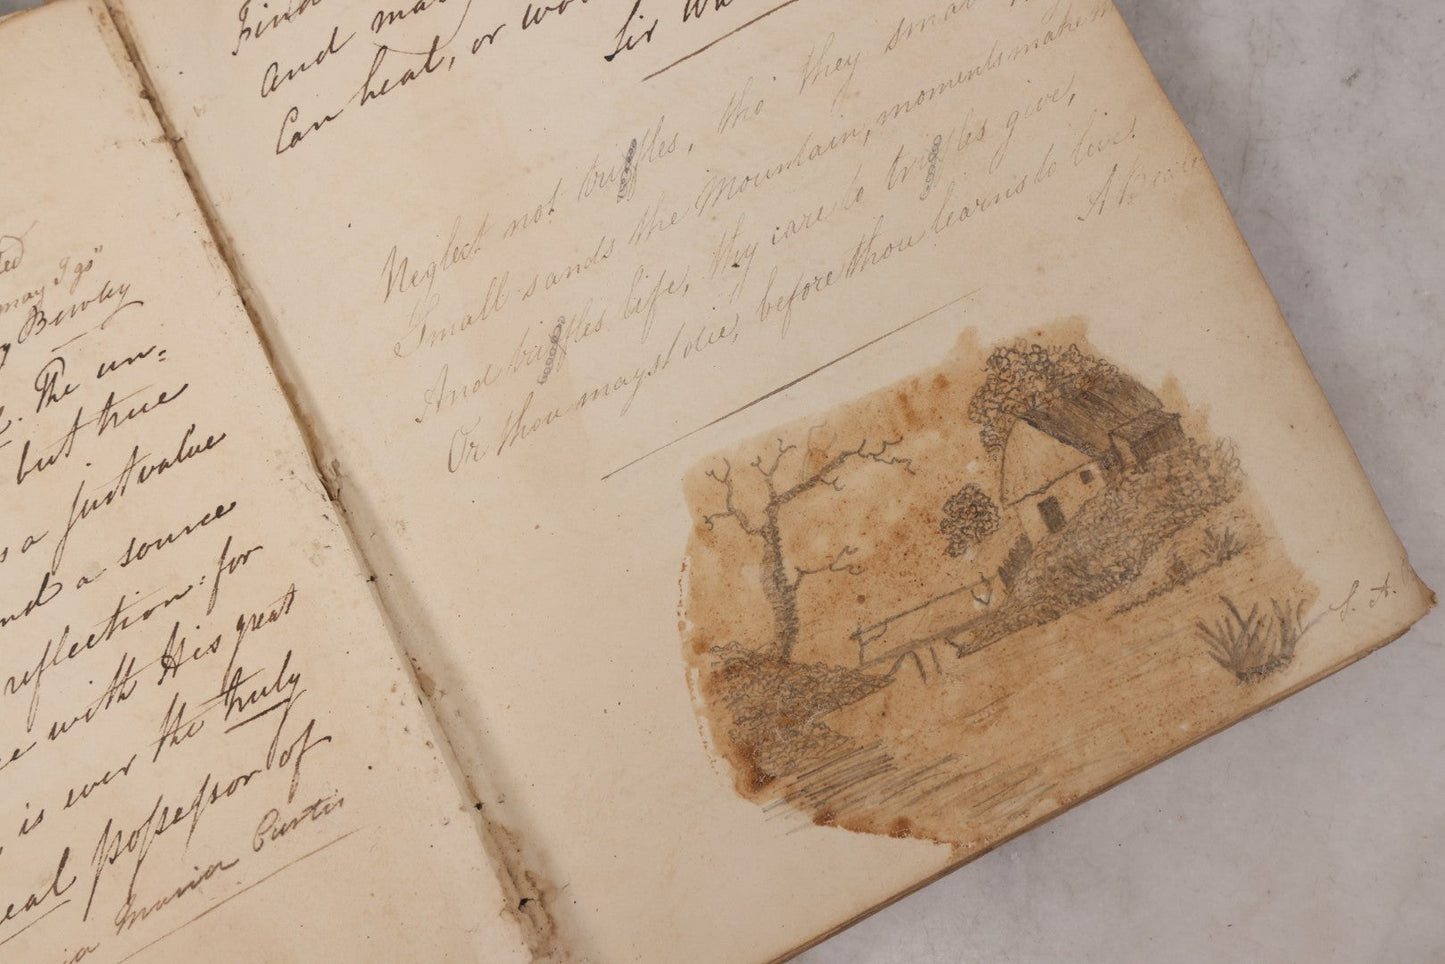 ted
may I go"
Bewley
The un=
but true
a just value
and a source
reflection: for
with His great
is ever the truly
real possessor of
Maria Curtis
Find
and
Can heal, or
Sir
Neglect not trifles, tho' they small
Small sands the Mountain, moments make
And trifles life, thy care to trifles give,
Or thou mayst die, before thou learns to live.
A
S. A.